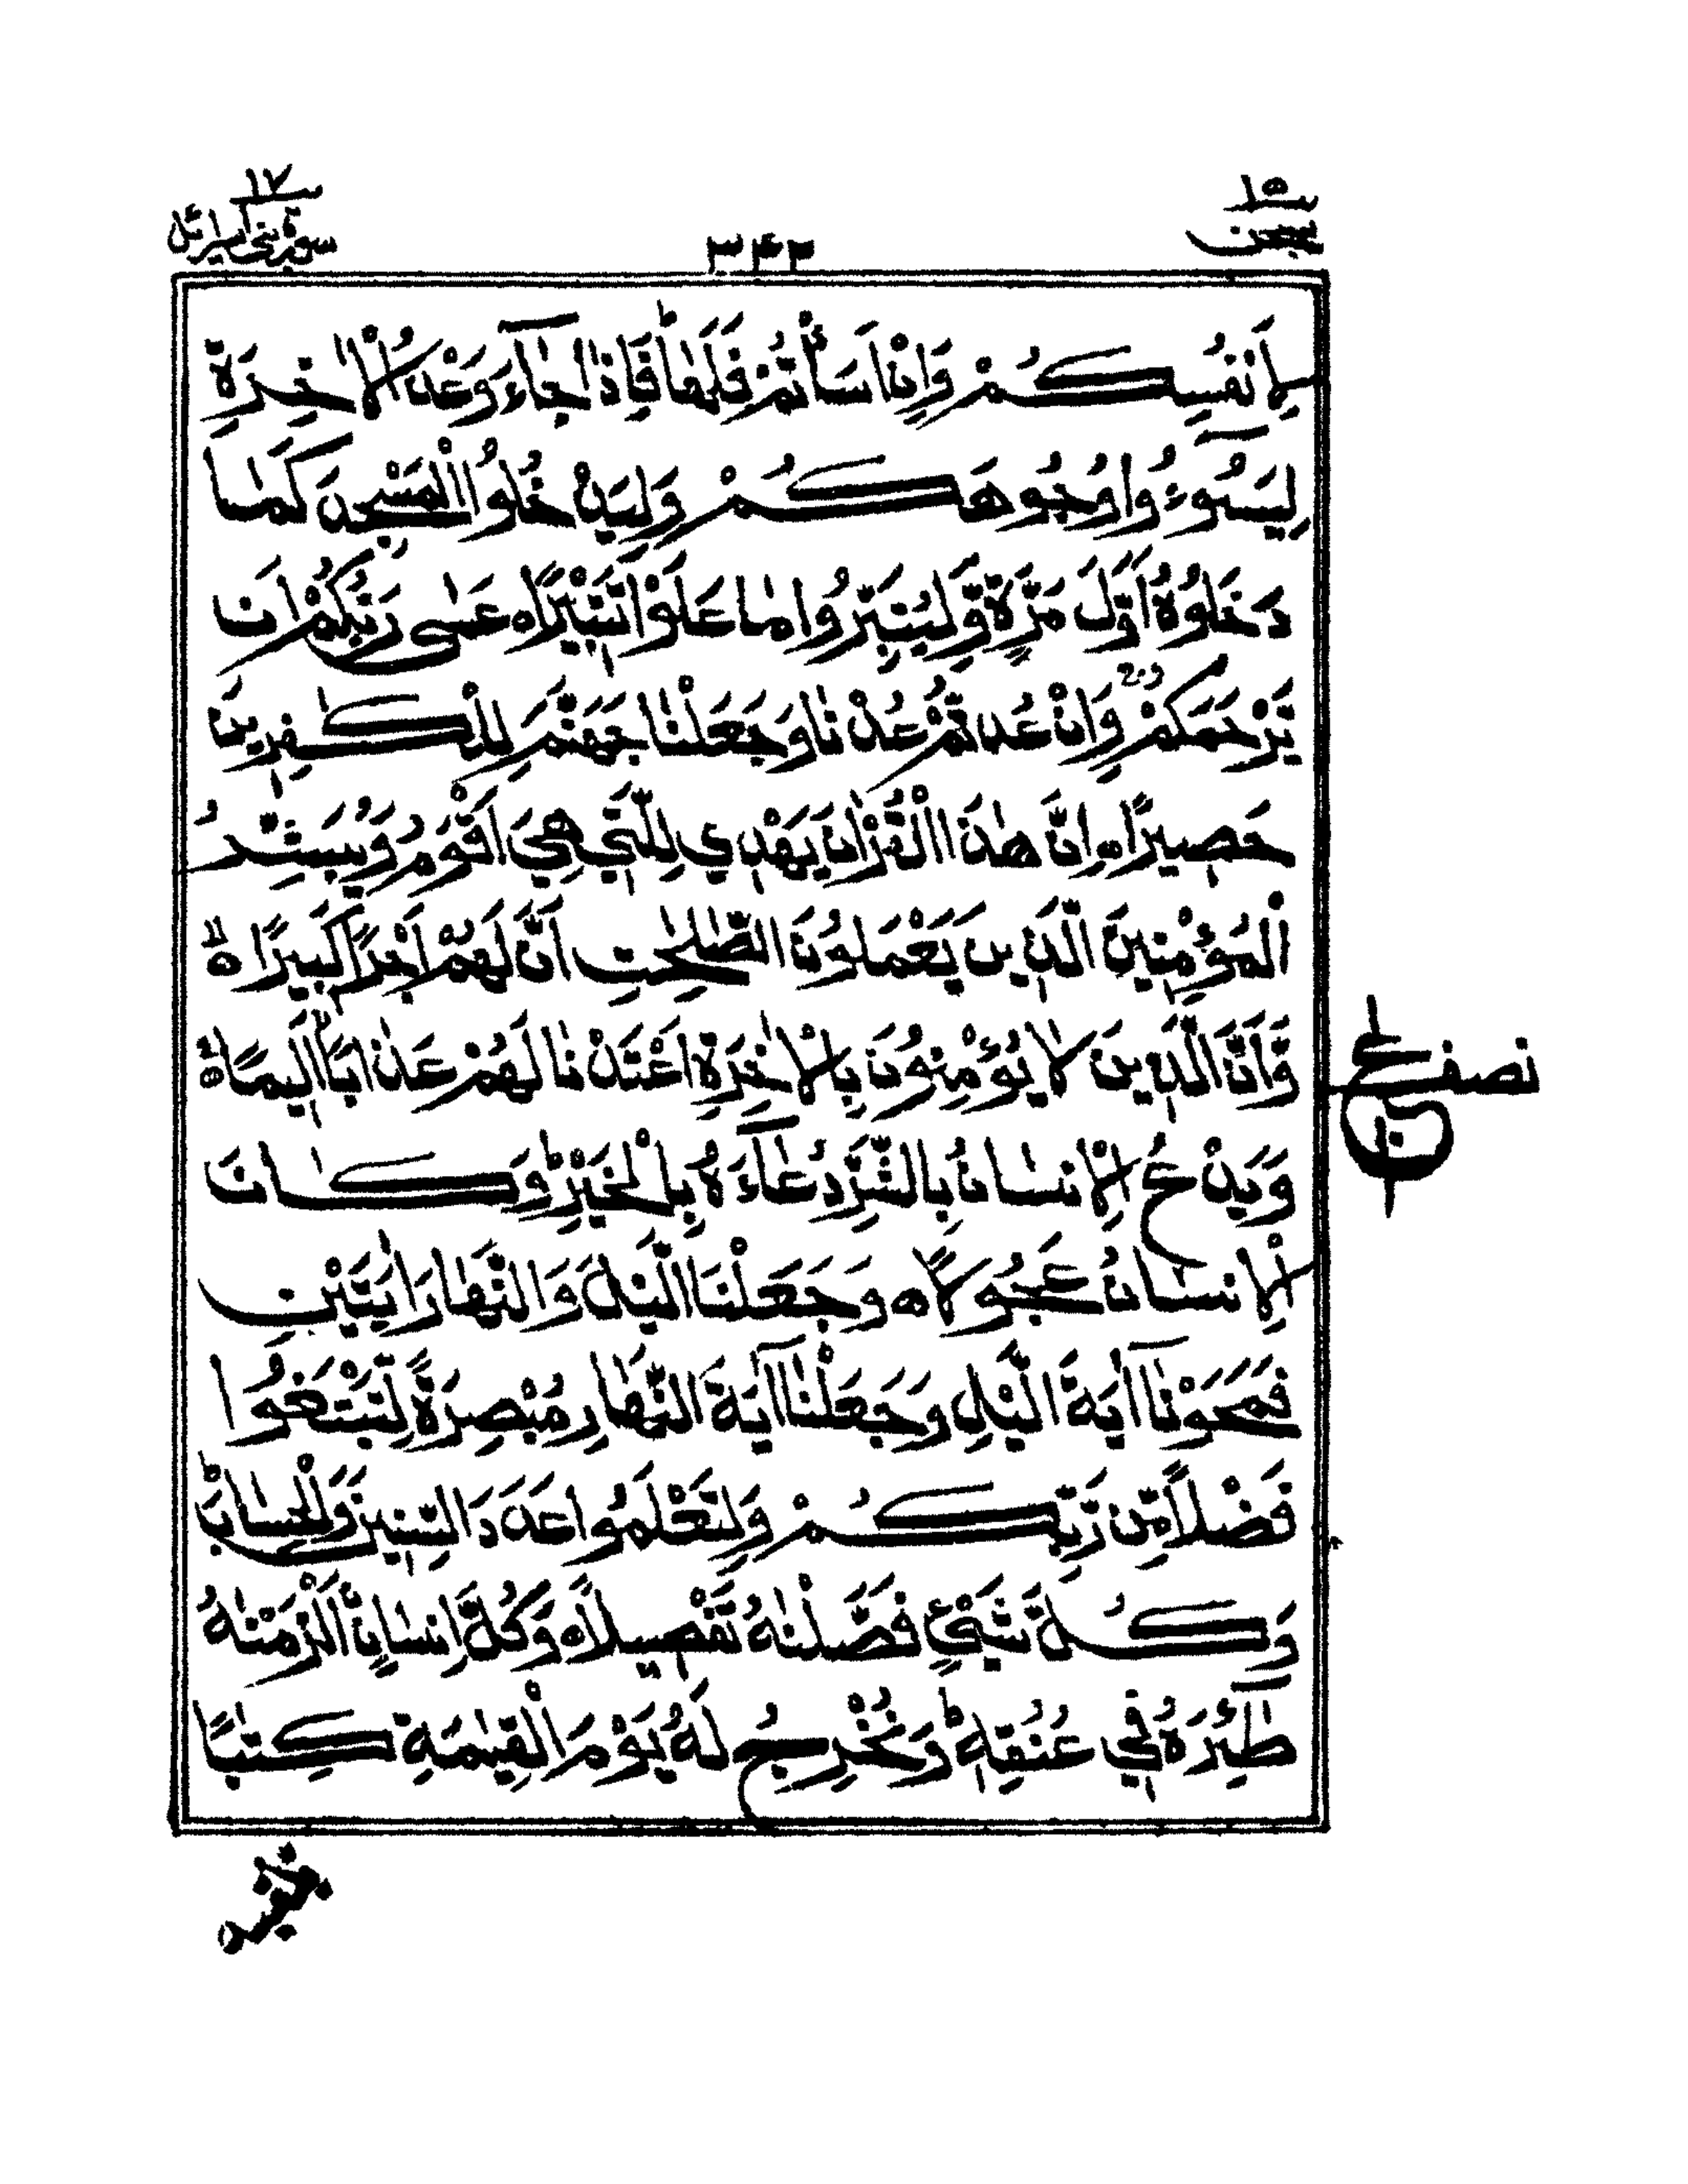 سبحن ١٥
٣٤٢
سورة بنی اسرائیل ١٧
لِاَنْفُسِكُمْ وَاِنْ اَسَأْتُمْ فَلَهَا ؕ فَاِذَا جَآءَ وَعْدُ الْاٰخِرَةِ
لِيَسُوْٓءُوْا وُجُوْهَكُمْ وَلِيَدْخُلُوا الْمَسْجِدَ كَمَا
دَخَلُوْهُ اَوَّلَ مَرَّةٍ وَّلِيُتَبِّرُوْا مَا عَلَوْا تَتْبِيْرًا ۝ عَسٰى رَبُّكُمْ اَنْ
يَّرْحَمَكُمْ وَاِنْ عُدْتُّمْ عُدْنَا وَجَعَلْنَا جَهَنَّمَ لِلْكٰفِرِيْنَ
حَصِيْرًا ۝ اِنَّ هٰذَا الْقُرْاٰنَ يَهْدِيْ لِلَّتِيْ هِيَ اَقْوَمُ وَيُبَشِّرُ
الْمُؤْمِنِيْنَ الَّذِيْنَ يَعْمَلُوْنَ الصّٰلِحٰتِ اَنَّ لَهُمْ اَجْرًا كَبِيْرًا ۝ لا
وَّاَنَّ الَّذِيْنَ لَا يُؤْمِنُوْنَ بِالْاٰخِرَةِ اَعْتَدْنَا لَهُمْ عَذَابًا اَلِيْمًا ۝ ع
نصف
وَيَدْعُ الْاِنْسَانُ بِالشَّرِّ دُعَآءَهٗ بِالْخَيْرِ ؕ وَكَانَ
الْاِنْسَانُ عَجُوْلًا ۝ وَجَعَلْنَا الَّيْلَ وَالنَّهَارَ اٰيَتَيْنِ
فَمَحَوْنَآ اٰيَةَ الَّيْلِ وَجَعَلْنَآ اٰيَةَ النَّهَارِ مُبْصِرَةً لِّتَبْتَغُوْا
فَضْلًا مِّنْ رَّبِّكُمْ وَلِتَعْلَمُوْا عَدَدَ السِّنِيْنَ وَالْحِسَابَ ؕ
وَكُلَّ شَيْءٍ فَصَّلْنٰهُ تَفْصِيْلًا ۝ وَكُلَّ اِنْسَانٍ اَلْزَمْنٰهُ
طٰٓئِرَهٗ فِيْ عُنُقِهٖ ؕ وَنُخْرِجُ لَهٗ يَوْمَ الْقِيٰمَةِ كِتٰبًا